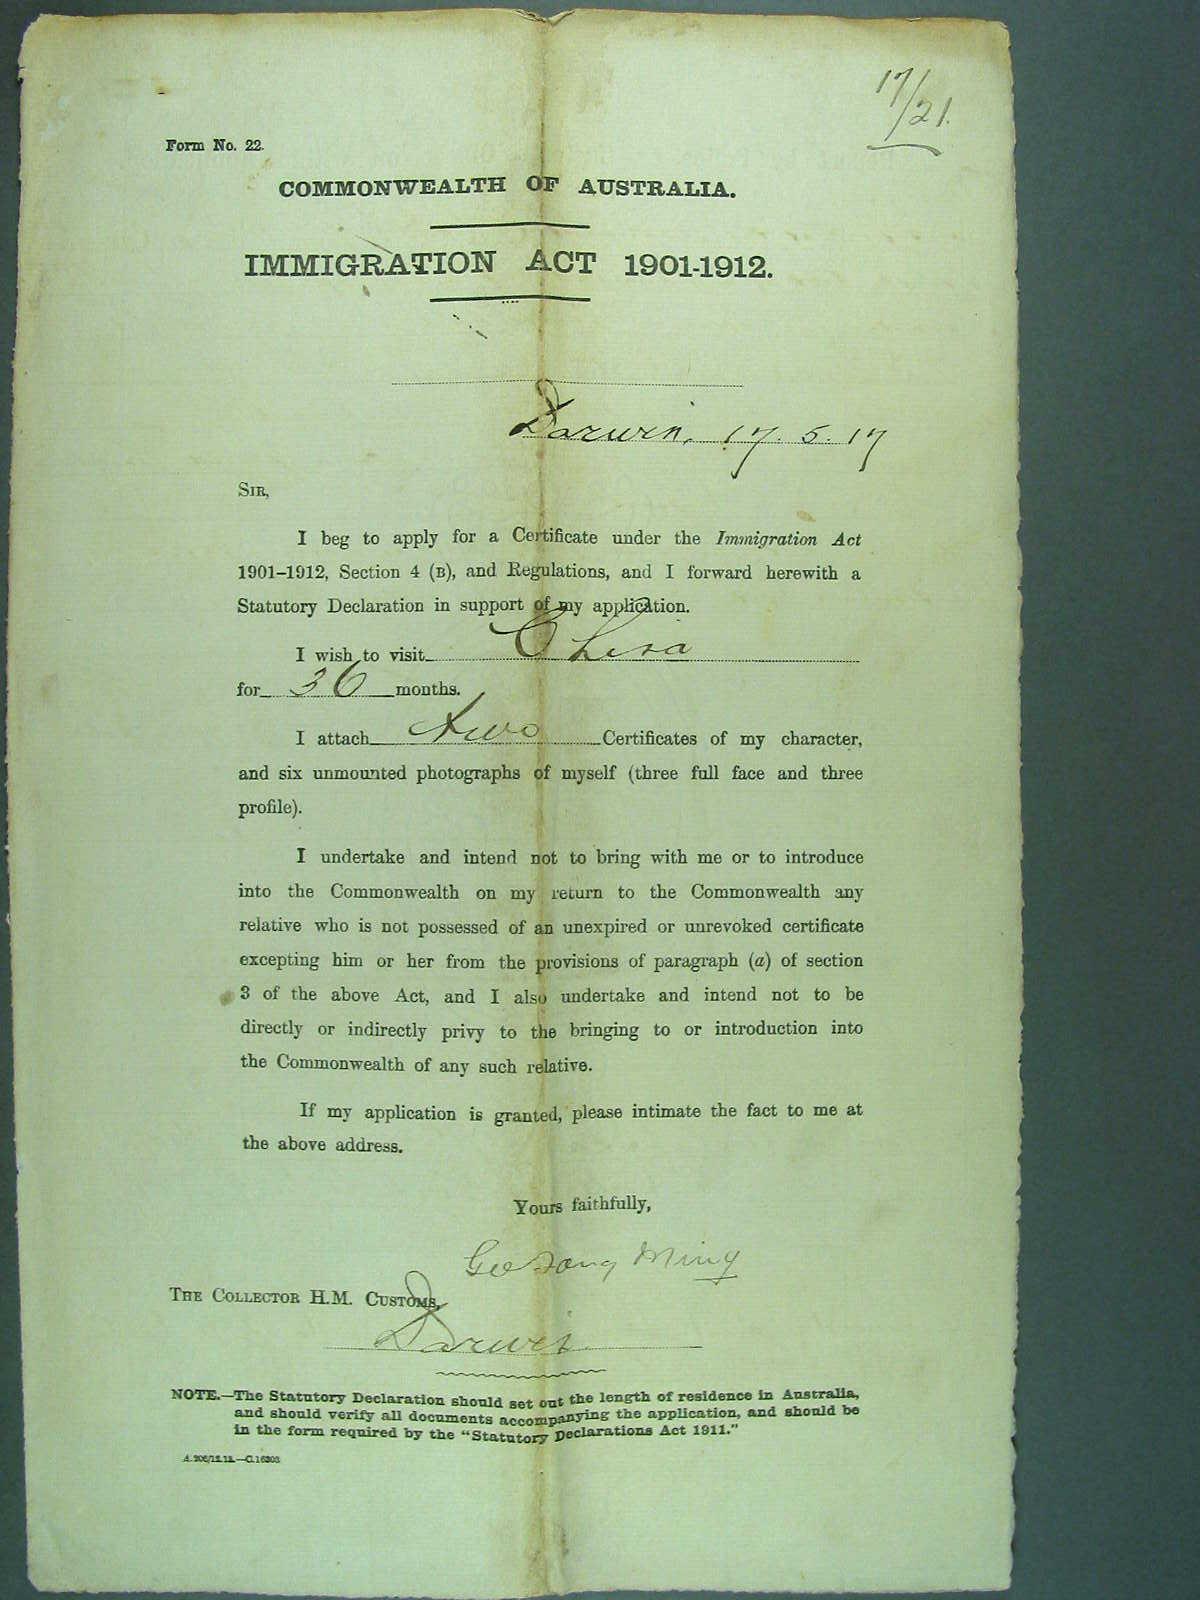 17/21.
Form No. 22.
COMMONWEALTH OF AUSTRALIA.
IMMIGRATION ACT 1901-1912.
Darwin, 17. 5. 17
SIR,
I beg to apply for a Certificate under the Immigration Act
1901–1912, Section 4 (B), and Regulations, and I forward herewith a
Statutory Declaration in support of my application.
I wish to visit China
for 36 months.
I attach two Certificates of my character,
and six unmounted photographs of myself (three full face and three
profile).
I undertake and intend not to bring with me or to introduce
into the Commonwealth on my return to the Commonwealth any
relative who is not possessed of an unexpired or unrevoked certificate
excepting him or her from the provisions of paragraph (a) of section
3 of the above Act, and I also undertake and intend not to be
directly or indirectly privy to the bringing to or introduction into
the Commonwealth of any such relative.
If my application is granted, please intimate the fact to me at
the above address.
Yours faithfully,
Ming
THE COLLECTOR H.M. CUSTOMS,
Darwin
NOTE.—The Statutory Declaration should set out the length of residence in Australia,
and should verify all documents accompanying the application, and should be
in the form required by the "Statutory Declarations Act 1911."